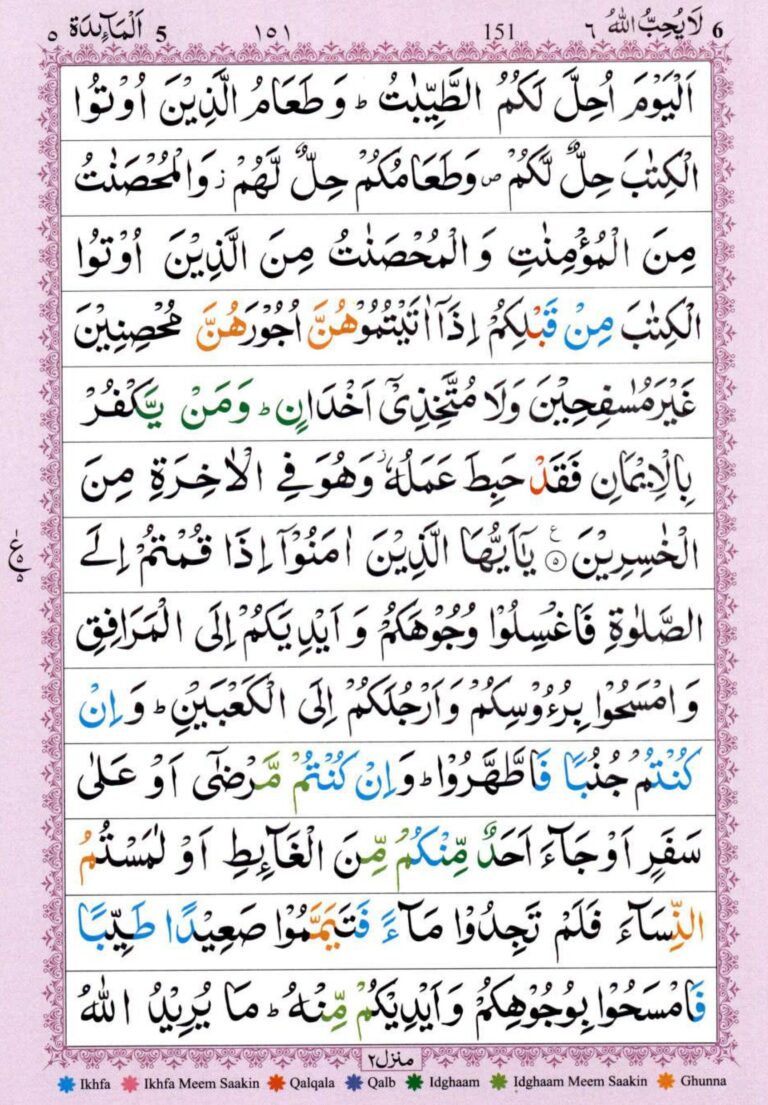 لَا يُحِبُّ اللّٰهُ ٦ 6 151 ١٥١ 5 اَلْمَآئِدَة ٥
اَلْيَوْمَ اُحِلَّ لَكُمُ الطَّيِّبٰتُ ؕ وَ طَعَامُ الَّذِيْنَ اُوْتُوا
الْكِتٰبَ حِلٌّ لَّكُمْ ۪ وَطَعَامُكُمْ حِلٌّ لَّهُمْ ؗ وَالْمُحْصَنٰتُ
مِنَ الْمُؤْمِنٰتِ وَالْمُحْصَنٰتُ مِنَ الَّذِيْنَ اُوْتُوا
الْكِتٰبَ مِنْ قَبْلِكُمْ اِذَاۤ اٰتَيْتُمُوْهُنَّ اُجُوْرَهُنَّ مُحْصِنِيْنَ
غَيْرَ مُسٰفِحِيْنَ وَلَا مُتَّخِذِيْۤ اَخْدَانٍ ؕ وَمَنْ يَّكْفُرْ
بِالْاِيْمَانِ فَقَدْ حَبِطَ عَمَلُهٗ ؗ وَهُوَ فِي الْاٰخِرَةِ مِنَ
الْخٰسِرِيْنَ ۝٥ ع يٰۤاَيُّهَا الَّذِيْنَ اٰمَنُوْۤا اِذَا قُمْتُمْ اِلَى
الصَّلٰوةِ فَاغْسِلُوْا وُجُوْهَكُمْ وَ اَيْدِيَكُمْ اِلَى الْمَرَافِقِ
وَامْسَحُوْا بِرُءُوْسِكُمْ وَاَرْجُلَكُمْ اِلَى الْكَعْبَيْنِ ؕ وَاِنْ
كُنْتُمْ جُنُبًا فَاطَّهَّرُوْا ؕ وَاِنْ كُنْتُمْ مَّرْضٰۤى اَوْ عَلٰى
سَفَرٍ اَوْ جَآءَ اَحَدٌ مِّنْكُمْ مِّنَ الْغَآئِطِ اَوْ لٰمَسْتُمُ
النِّسَآءَ فَلَمْ تَجِدُوْا مَآءً فَتَيَمَّمُوْا صَعِيْدًا طَيِّبًا
فَامْسَحُوْا بِوُجُوْهِكُمْ وَاَيْدِيْكُمْ مِّنْهُ ؕ مَا يُرِيْدُ اللّٰهُ
منزل٢
Ikhfa Ikhfa Meem Saakin Qalqala Qalb Idghaam Idghaam Meem Saakin Ghunna